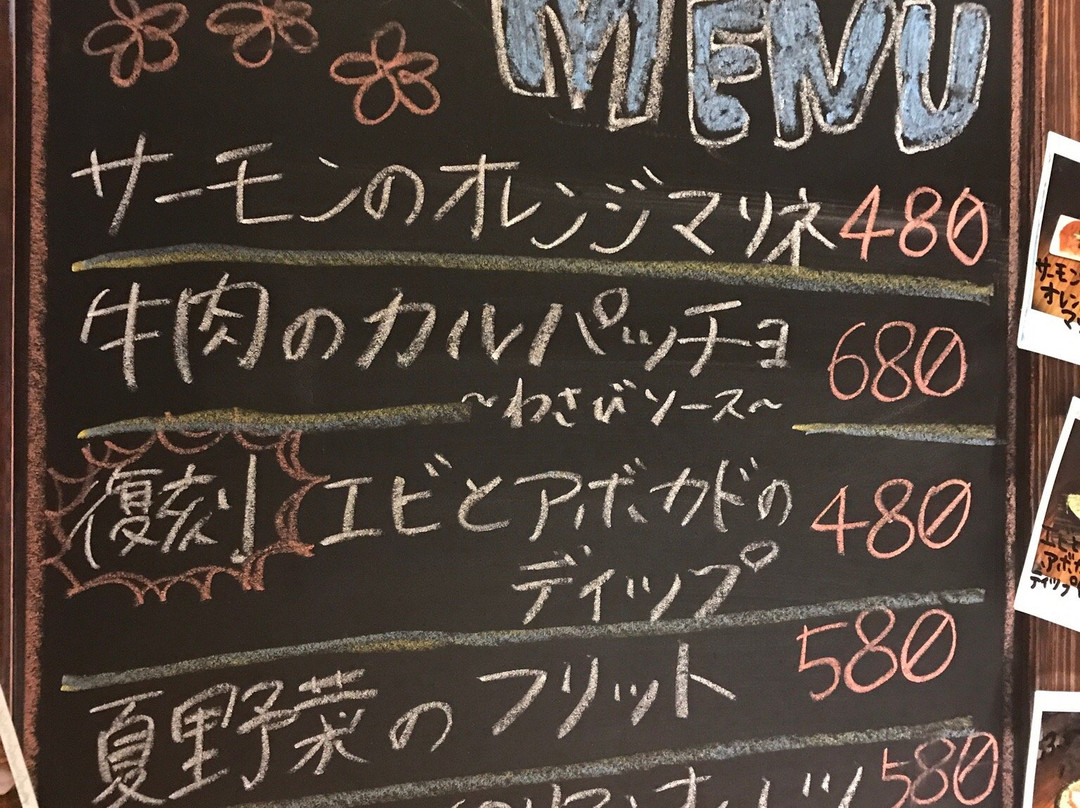 MENU
サーモンのオレンジマリネ 480
牛肉のカルパッチョ 680
～わさびソース～
復刻 エビとアボカドの 480
ディップ
夏野菜のフリット 580
580
サーモン
オレン
マ
アボカ
ディップ